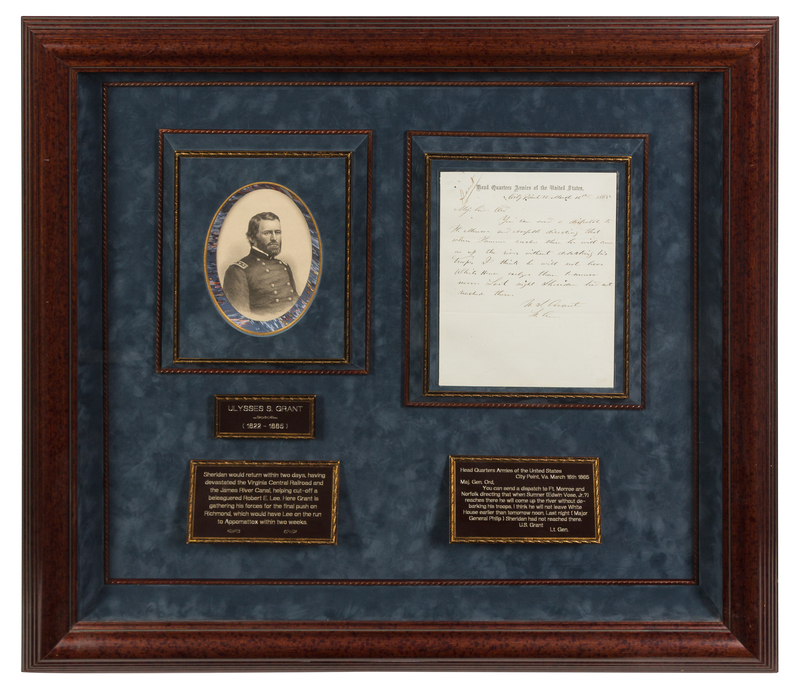 Head Quarters Armies of the United States,
City Point, Va. March 16th 1865
Maj. Gen. Ord,
You can send a dispatch to
Ft. Monroe and Norfolk directing that
when Sumner reaches there he will come
up the river without debarking his
troops. I think he will not leave
White House earlier than tomorrow
noon. Last night Sheridan had not
reached there.
U. S. Grant
Lt. Gen.
ULYSSES S. GRANT
(1822 - 1885)
Sheridan would return within two days, having
devastated the Virginia Central Railroad and
the James River Canal, helping cut-off a
beleaguered Robert E. Lee. Here Grant is
gathering his forces for the final push on
Richmond, which would have Lee on the run
to Appomattox within two weeks.
Head Quarters Armies of the United States
City Point, Va. March 16th 1865
Maj. Gen. Ord,
You can send a dispatch to Ft. Monroe and
Norfolk directing that when Sumner (Edwin Vose, Jr.?)
reaches there he will come up the river without de-
barking his troops. I think he will not leave White
House earlier than tomorrow noon. Last night ( Major
General Philip ) Sheridan had not reached there.
U.S. Grant
Lt. Gen.